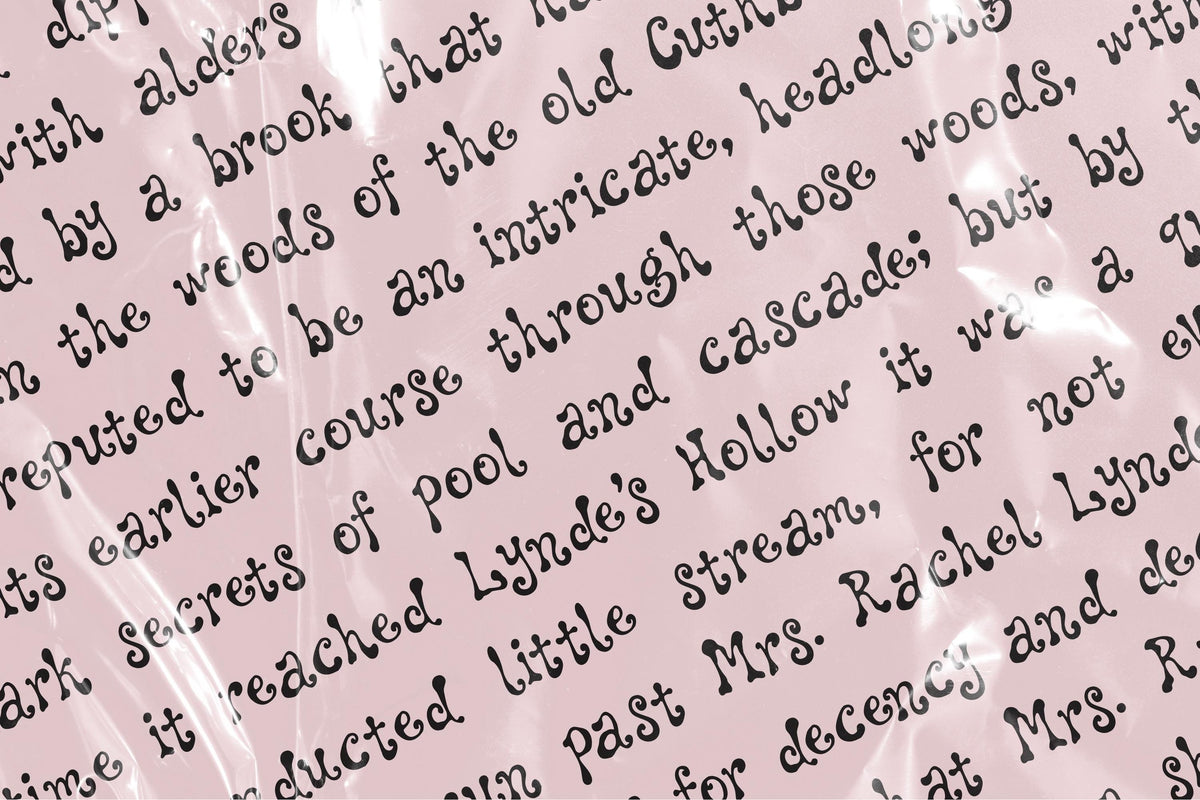 dip
with alders
d by a brook that ha
n the woods of the old Cuthb
reputed to be an intricate, headlong
its earlier course through those woods, with
ark secrets of pool and cascade; but by th
time it reached Lynde's Hollow it was a qu
nducted little stream, for not e
un past Mrs. Rachel Lynd
for decency and dec
hat Mrs. R
sh